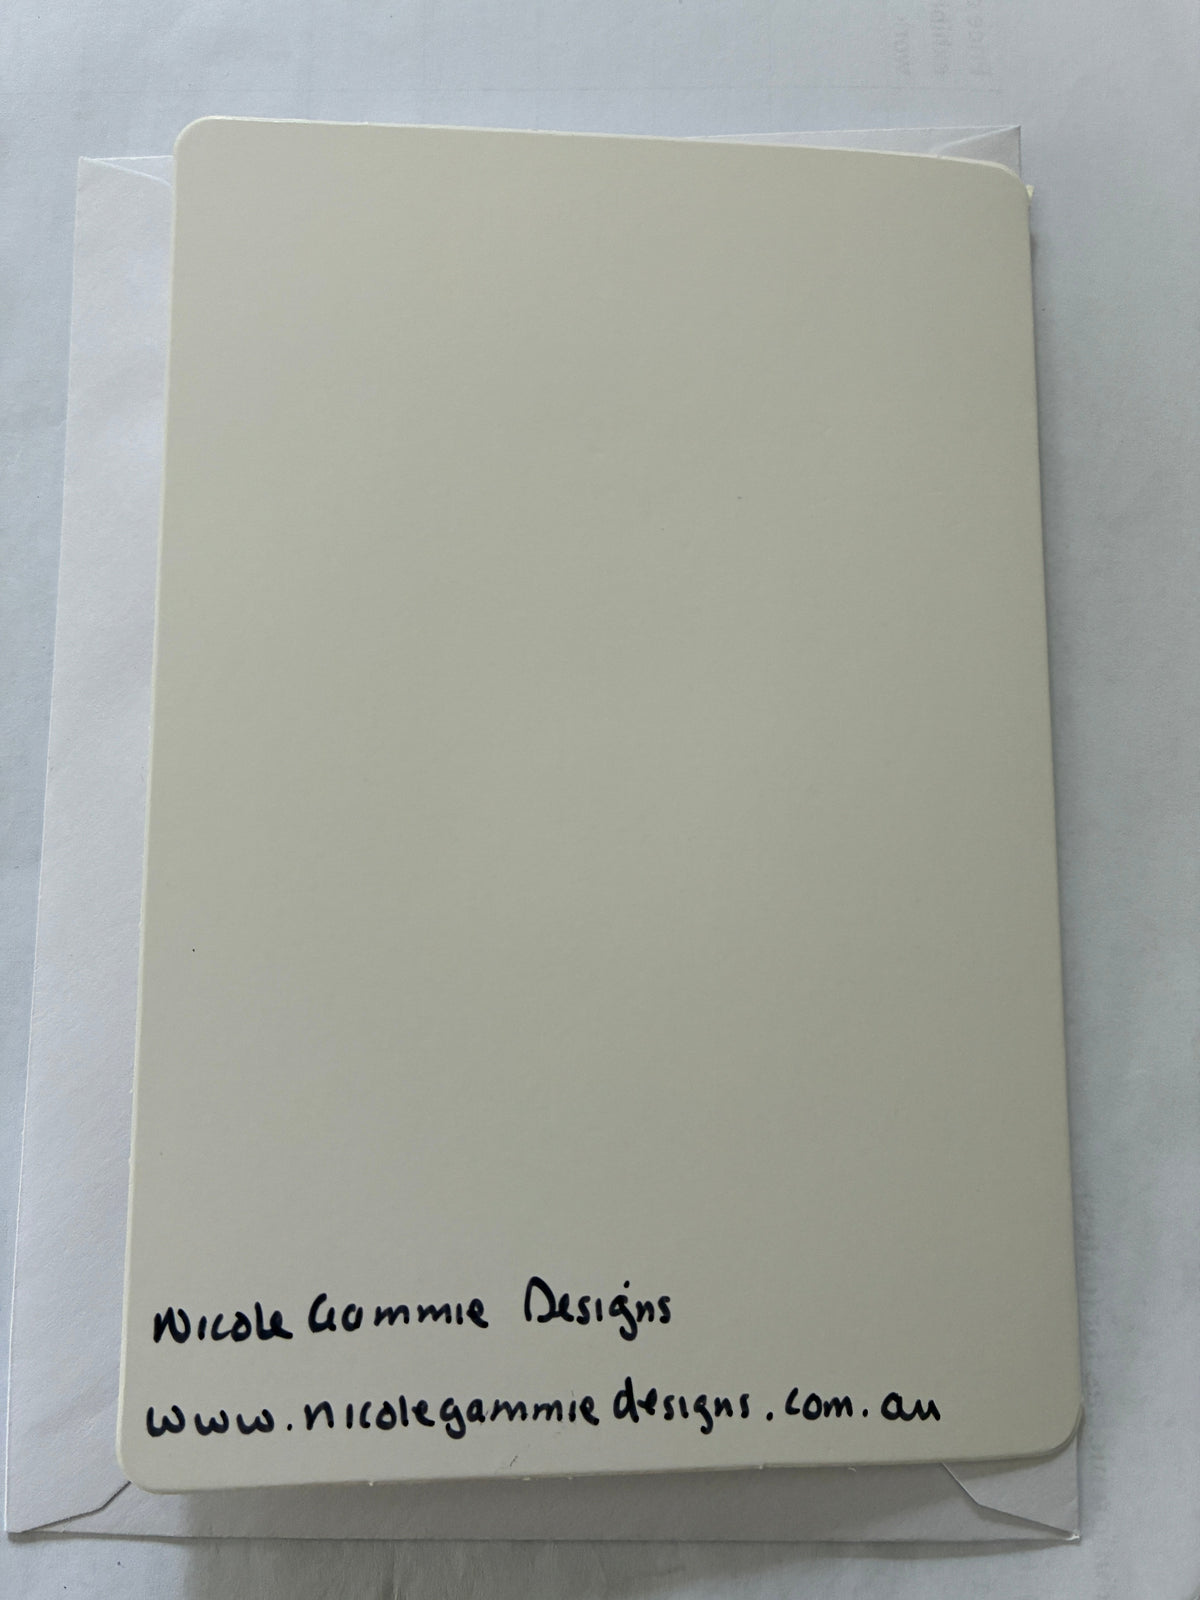 Nicole Gammie Designs
www.nicolegammiedesigns.com.au